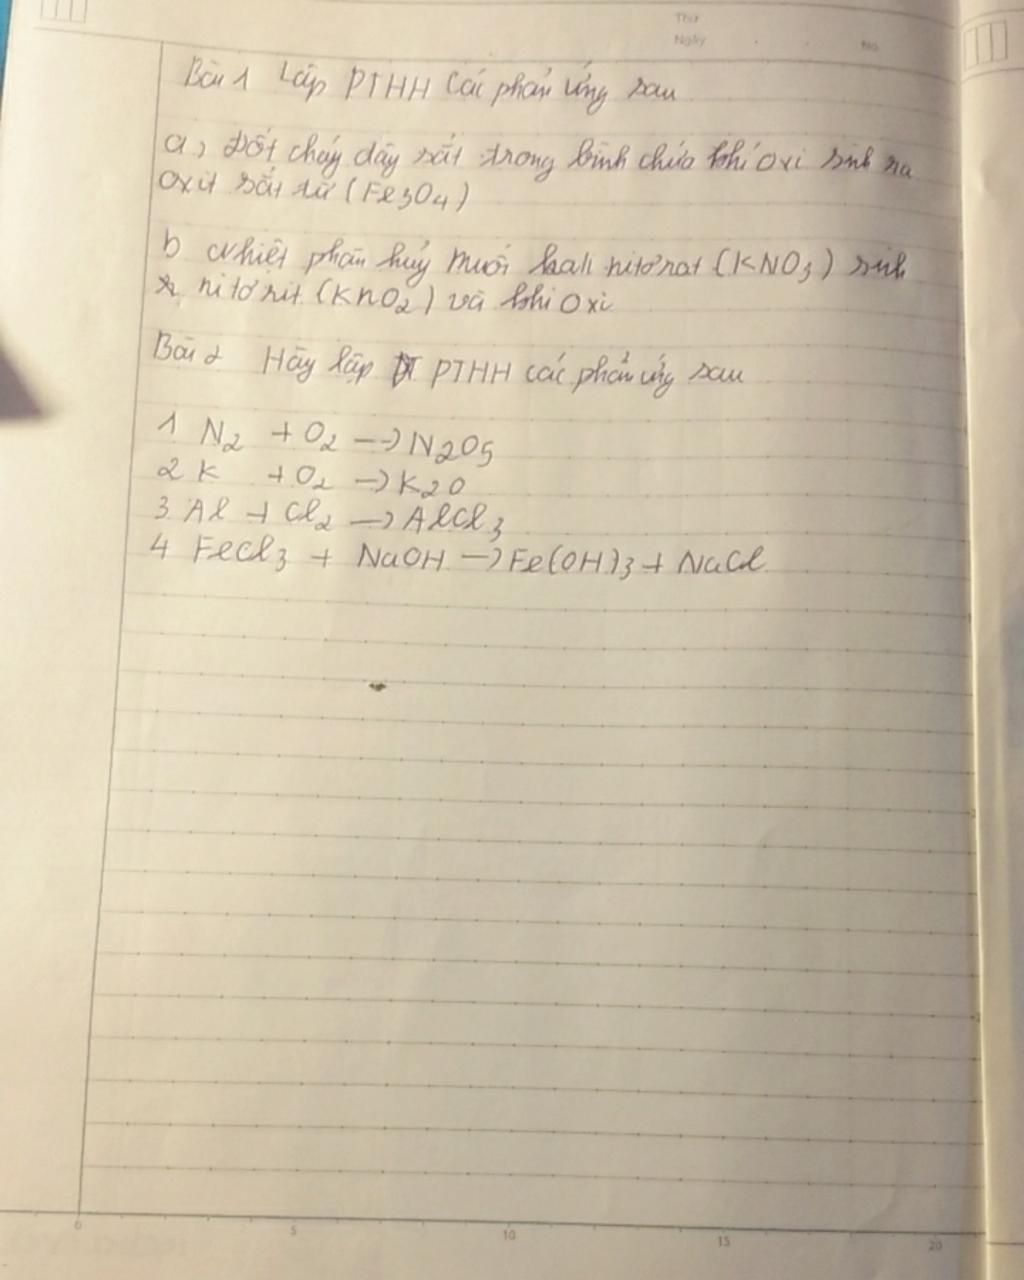 Thứ
Ngày . . No
Bài 1 Lập PTHH các phản ứng sau
a, Đốt cháy dây sắt trong bình chứa khí oxi sinh ra
oxit sắt từ (Fe3O4)
b Nhiệt phân hủy muối kali nitơrat (KNO3) sinh
ra nitơrit (KNO2) và khi Oxi
Bài 2 Hãy lập PTHH các phản ứng sau
1 N2 + O2 --> N2O5
2 K + O2 -> K2O
3. Al + Cl2 -> AlCl3
4 FeCl3 + NaOH -> Fe(OH)3 + NaCl
0 5 10 15 20